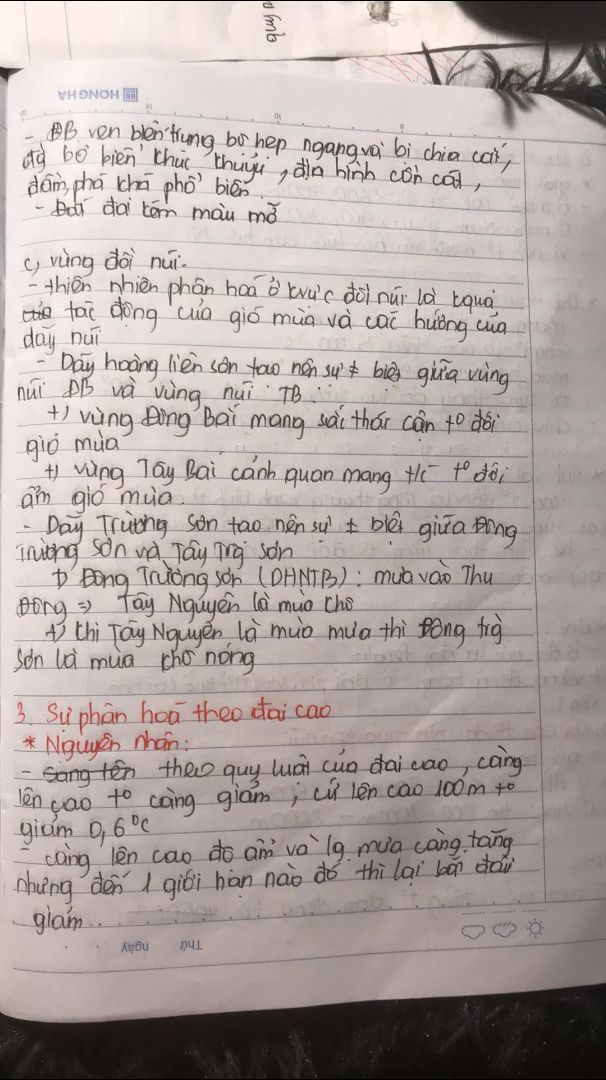 HONG HA
- ĐB ven biển trung bộ hẹp ngang và bị chia cắt,
đg bờ biển khúc khuỷu, địa hình cồn cát,
đầm, phá khá phổ biến.
- Đất đai kém màu mỡ
c, vùng đồi núi.
- thiên nhiên phân hoá ở kvực đồi núi là kquả
tác động của gió mùa và các hướng của
dãy núi
- Dãy hoàng liên sơn tạo nên sự ≠ biệt giữa vùng
núi ĐB và vùng núi TB
+) vùng Đông Bắc mang sắc thái cận t° đới
gió mùa
+) vùng Tây Bắc cảnh quan mang t/c t° đới
ẩm gió mùa.
- Dãy Trường Sơn tạo nên sự ≠ biệt giữa Đông
Trường Sơn và Tây Trg Sơn
+) Đông Trường Sơn (DHNTB): mưa vào Thu
Đông => Tây Nguyên là mùa khô
+) khi Tây Nguyên là mùa mưa thì Đông trg
Sơn là mùa khô nóng
3. Sự phân hoá theo đai cao
* Nguyên nhân:
- theo quy luật của đai cao, càng
lên cao t° càng giảm, cứ lên cao 100m t°
giảm 0,6°C
- càng lên cao độ ẩm và lg mưa càng tăng
nhưng đến 1 giới hạn nào đó thì lại bắt đầu
giảm..
Thứ ngày